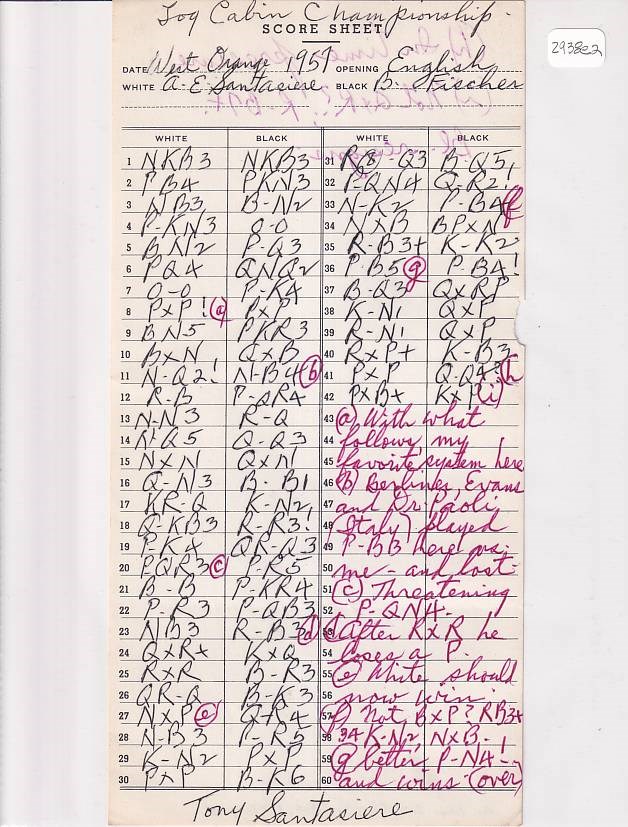 Log Cabin Championship.
SCORE SHEET
2938e2
DATE West Orange 1957 OPENING English
WHITE A. E Santasiere BLACK B. Fischer
WHITE BLACK WHITE BLACK
1 NKB3 NKB3 31 R(8)-Q3 B-Q5!
2 PB4 PKN3 32 P-QN4 Q-R2!
3 NB3 B-N2 33 N-K2 P-B4 f
4 P-KN3 0-0 34 NxB BPxN
5 BN2 P-Q3 35 R-B3+ K-K2
6 PQ4 QNQ2 36 P-B5 (g) P-B4!
7 0-0 P-K4 37 B-Q3 QxRP
8 PxP! (a) PxP 38 K-N1 QxP
9 BN5 PKR3 39 R-N1 QxP
10 BxN QxB 40 RxP+ K-B3
11 N-Q2! N-B4 (b) 41 PxP Q-Q4? (h)
12 R-B P-QR4 42 PxB+ KxP (i)
13 N-N3 R-Q 43 (a) With what
14 N-Q5 Q-Q3 44 follows my
15 NxN QxN 45 favorite system here
16 Q-N3 B-B1 46 (b) Berliner, Evans
17 KR-Q K-N2, 47 and Dr Paoli
18 Q-KB3 R-R3! 48 (Italy) played
19 P-K4 QR-Q3 49 P-BB here vs.
20 PQR3 (c) P-R5 50 me - and lost.
21 B-B P-KR4 51 (c) Threatening
22 P-R3 P-QB3 52 P-QN4.
23 NB3 R-B3 (d) 53 (d) After RxR he
24 QxR+ KxQ 54 loses a P.
25 RxR B-R3 55 (e) White should
26 QR-Q B-K3 56 now win.
27 NxP (e) Q-R4 57 (f) Not, BxP? RB3+
28 N-B3 P-R5 58 34 K-N2, NxB.
29 K-N2 PxP 59 (g) better P-N4!
30 PxP B-K6 60 and wins (over)
Tony Santasiere